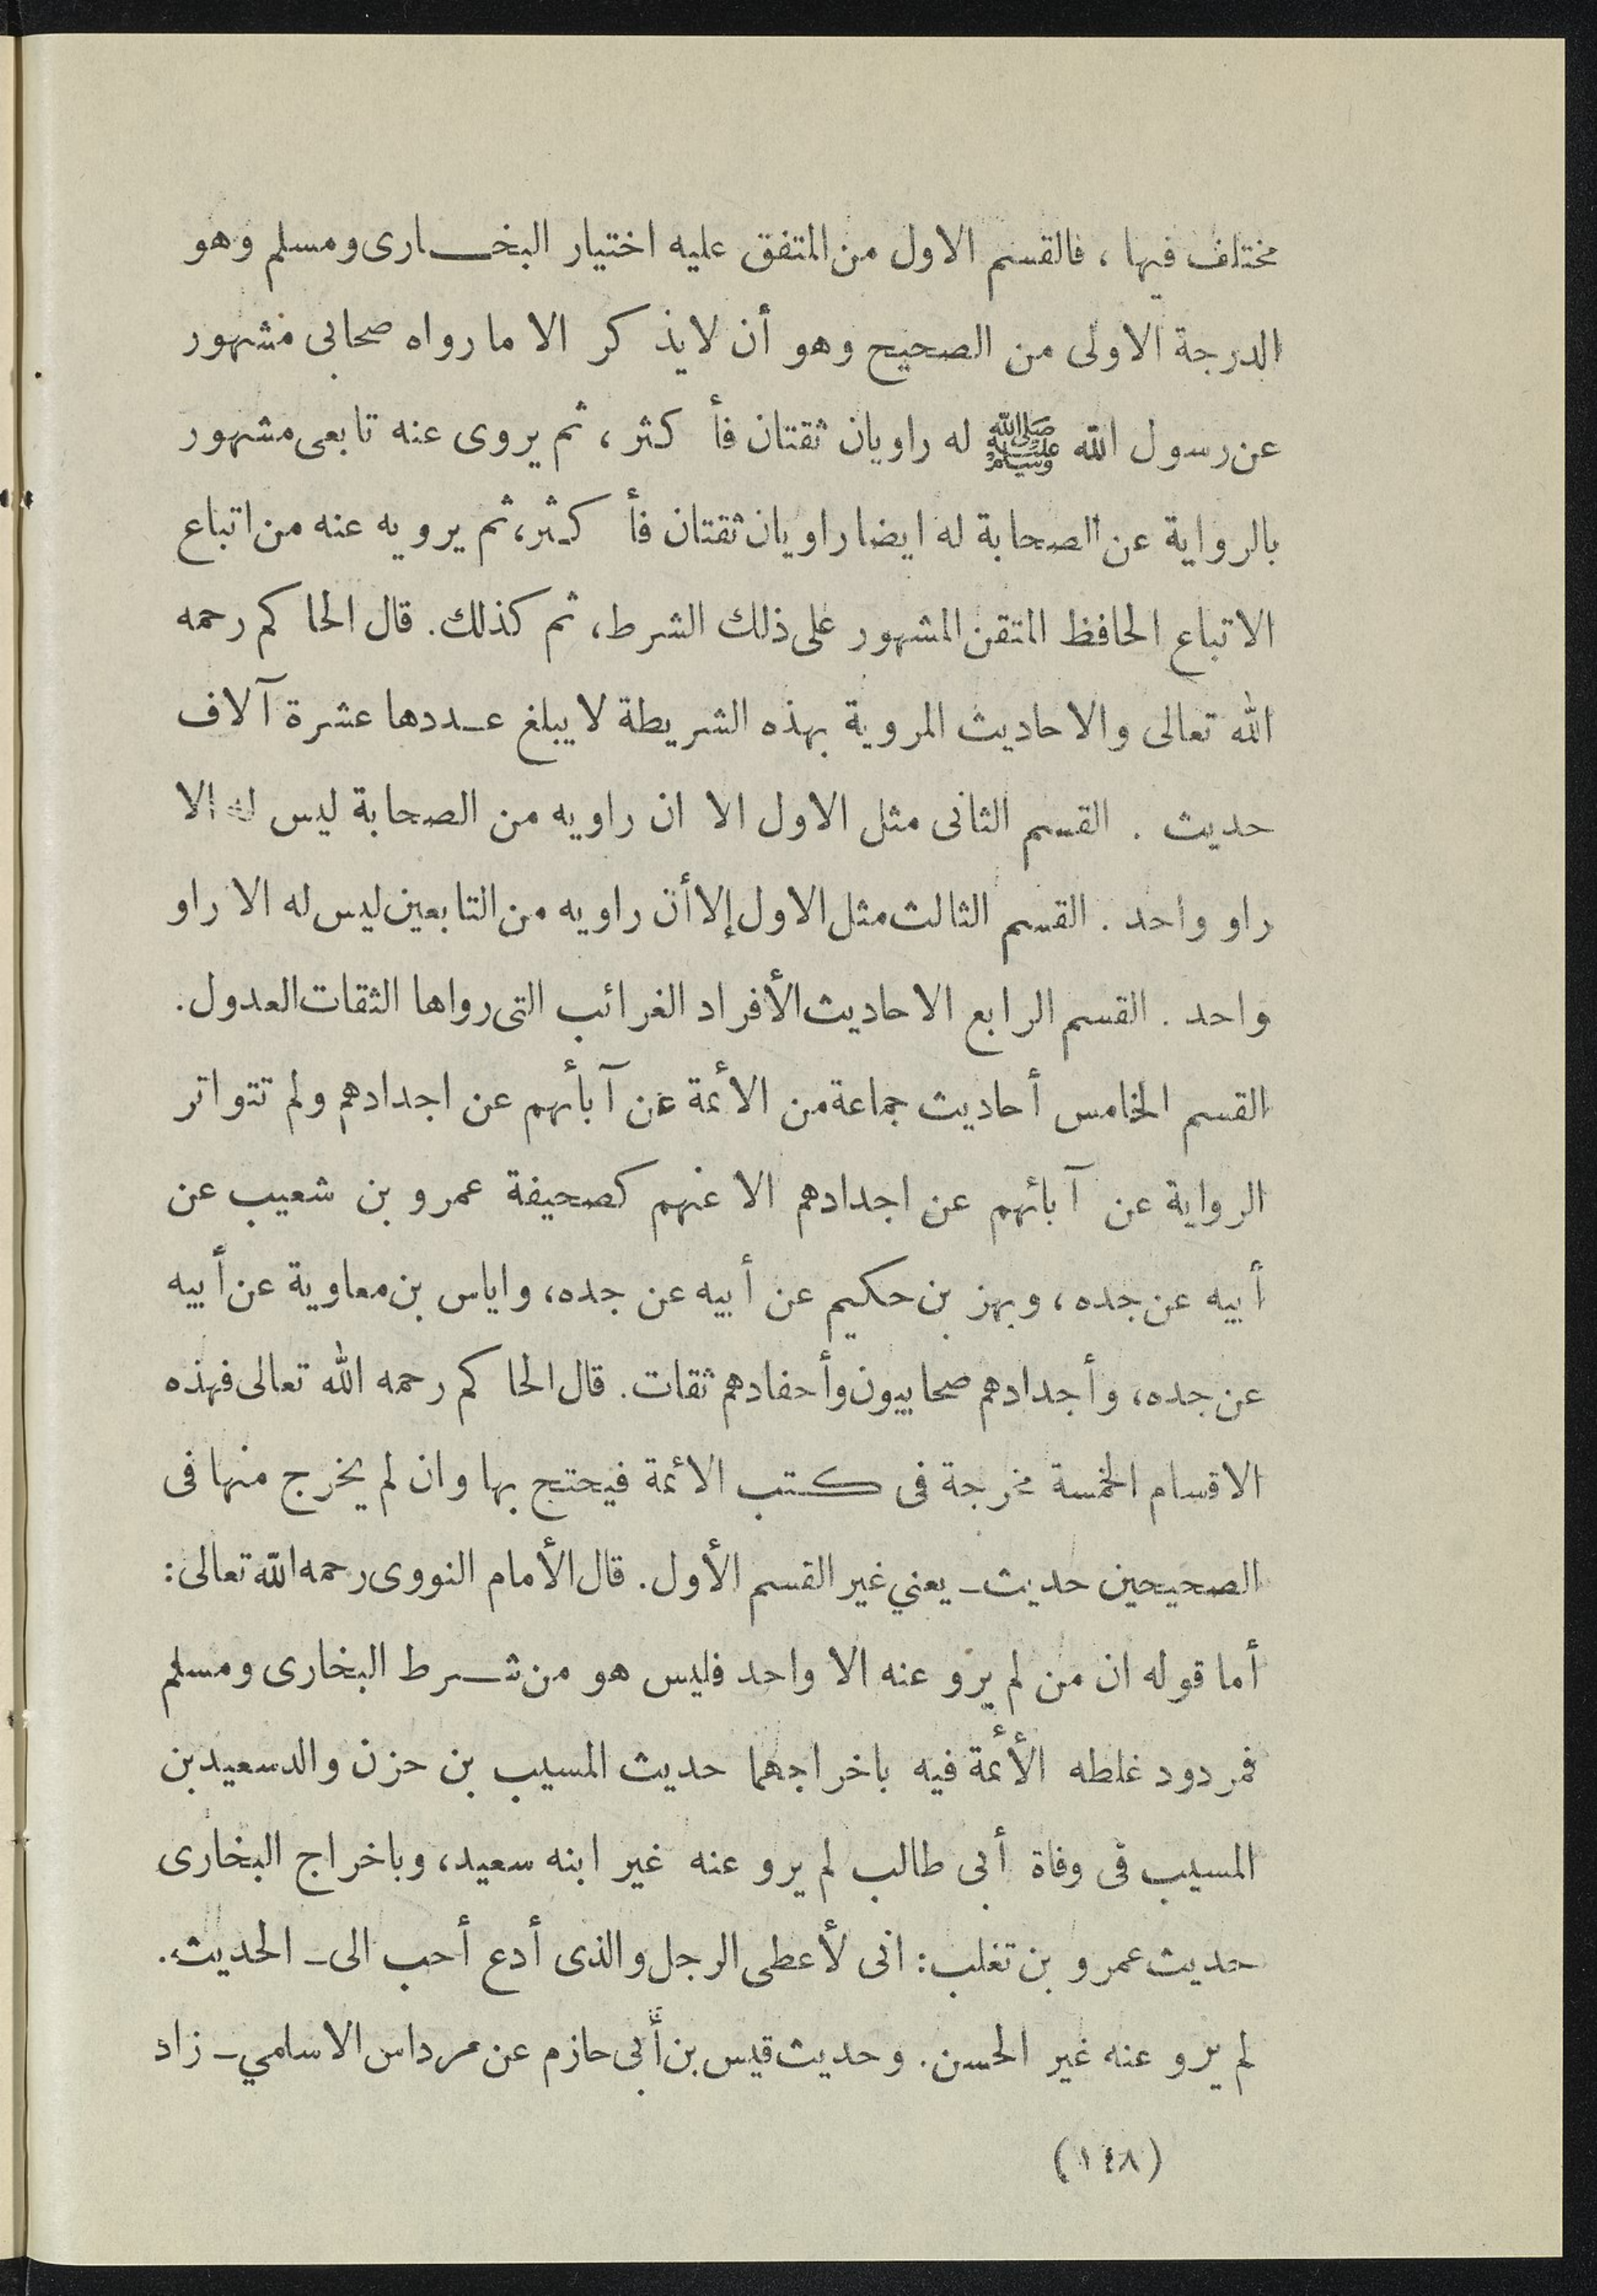 مختلف فيها ، فالقسم الاول من المتفق عليه اختيار البخـــارى ومسلم وهو
الدرجة الاولى من الصحيح وهو أن لايذكر الا ما رواه صحابى مشهور
عن رسول الله ﷺ له راويان ثقتان فأكثر ، ثم يروى عنه تابعى مشهور
بالرواية عن الصحابة له ايضا راويان ثقتان فأكثر، ثم يرويه عنه من اتباع
الاتباع الحافظ المتقن المشهور على ذلك الشرط، ثم كذلك. قال الحاكم رحمه
الله تعالى والاحاديث المروية بهذه الشريطة لا يبلغ عـددها عشرة آلاف
حديث . القسم الثانى مثل الاول الا ان راويه من الصحابة ليس له الا
راو واحد . القسم الثالث مثل الاول إلا أن راويه من التابعين ليس له الا راو
واحد . القسم الرابع الاحاديث الأفراد الغرائب التى رواها الثقات العدول.
القسم الخامس أحاديث جماعة من الأئمة عن آبأئهم عن اجدادهم ولم تتواتر
الرواية عن آبائهم عن اجدادهم الا عنهم كصحيفة عمرو بن شعيب عن
أبيه عن جده ، وبهز بن حكيم عن أبيه عن جده، واياس بن معاوية عن أبيه
عن جده، وأجدادهم صحابيون وأحفادهم ثقات. قال الحاكم رحمه الله تعالى فهذه
الاقسام الخمسة مخرجة فى كتب الائمة فيحتج بها وان لم يخرج منها فى
الصحيحين حديث ـ يعني غير القسم الأول. قال الأمام النووى رحمه الله تعالى:
أما قوله ان من لم يرو عنه الا واحد فليس هو من شـرط البخارى ومسلم
فمردود غلطه الأئمة فيه باخراجهما حديث المسيب بن حزن والد سعيد بن
المسيب فى وفاة أبى طالب لم يرو عنه غير ابنه سعيد، وباخراج البخارى
حديث عمرو بن تغلب: انى لأعطى الرجل والذى أدع أحب الى ـ الحديث.
لم يرو عنه غير الحسن. وحديث قيس بن أبى حازم عن مرداس الاسلمي ـ زاد
(١٤٨)